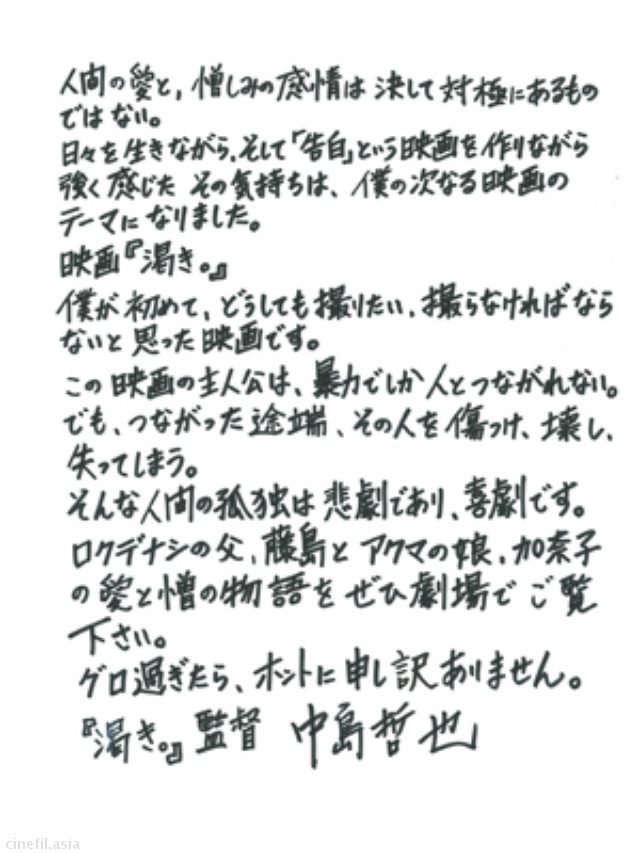 人間の愛と、憎しみの感情は決して対極にあるもの
ではない。
日々を生きながら、そして「告白」という映画を作りながら
強く感じたその気持ちは、僕の次なる映画の
テーマになりました。
映画『渇き。』
僕が初めて、どうしても撮りたい、撮らなければなら
ないと思った映画です。
この映画の主人公は、暴力でしか人とつながれない。
でも、つながった途端、その人を傷つけ、壊し、
失ってしまう。
そんな人間の孤独は悲劇であり、喜劇です。
ロクデナシの父、藤島とアクマの娘、加奈子
の愛と憎の物語をぜひ劇場でご覧
下さい。
グロ過ぎたら、ホントに申し訳ありません。
『渇き。』監督 中島哲也
cinefil.asia